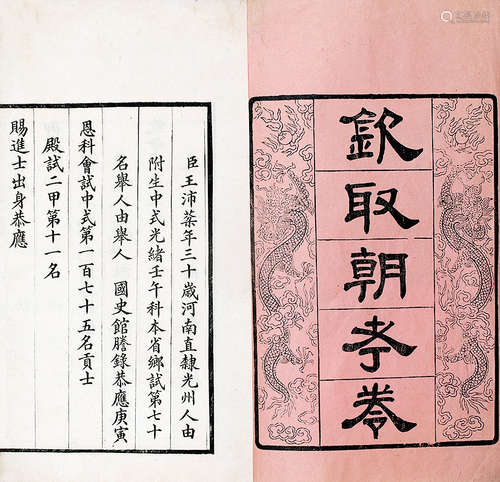 欽取朝考卷
臣王沛棻年三十歲河南直隸光州人由
附生中式光緒壬午科本省鄉試第七十
名舉人由舉人 國史館謄錄恭應庚寅
恩科會試中式第一百七十五名貢士
殿試二甲第十一名
賜進士出身恭應